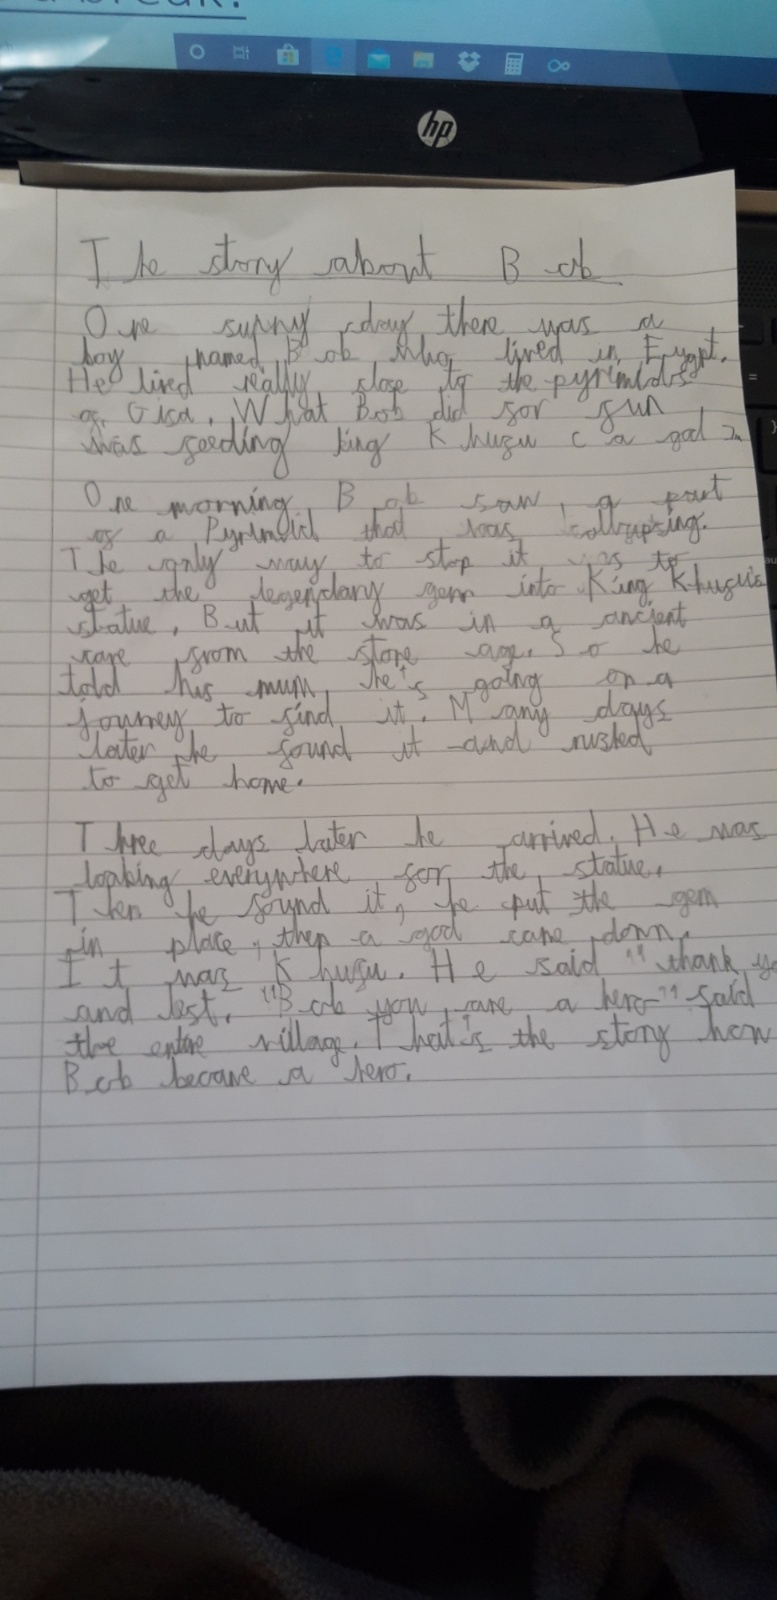 break!
hp
The story about Bob
One sunny day there was a
boy named Bob who lived in Eygpt.
He lived really close to the pyrimids
of Gisa. What Bob did for fun
was feeding king Khufu (a god
One morning Bob saw a part
of a Pyrimid that was collapsing.
The only way to stop it was to
get the legendary gem into King Khufu's
statue. But it was in a ancient
cave from the stone age. So he
told his mum he's going on a
journey to find it. Many days
later he found it and rushed
to get home.
Three days later he arrived. He was
looking everywhere for the statue.
Then he found it, he put the gem
in place, then a god came down.
It was Khufu. He said "thank yo
and left. "Bob you are a hero" said
the entire village. That's the story how
Bob became a hero.